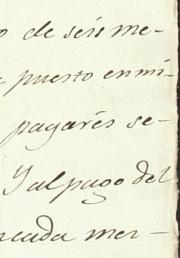 o de seis me-
puesto en mi
pagarés se-
Y al pago del
cada mer-